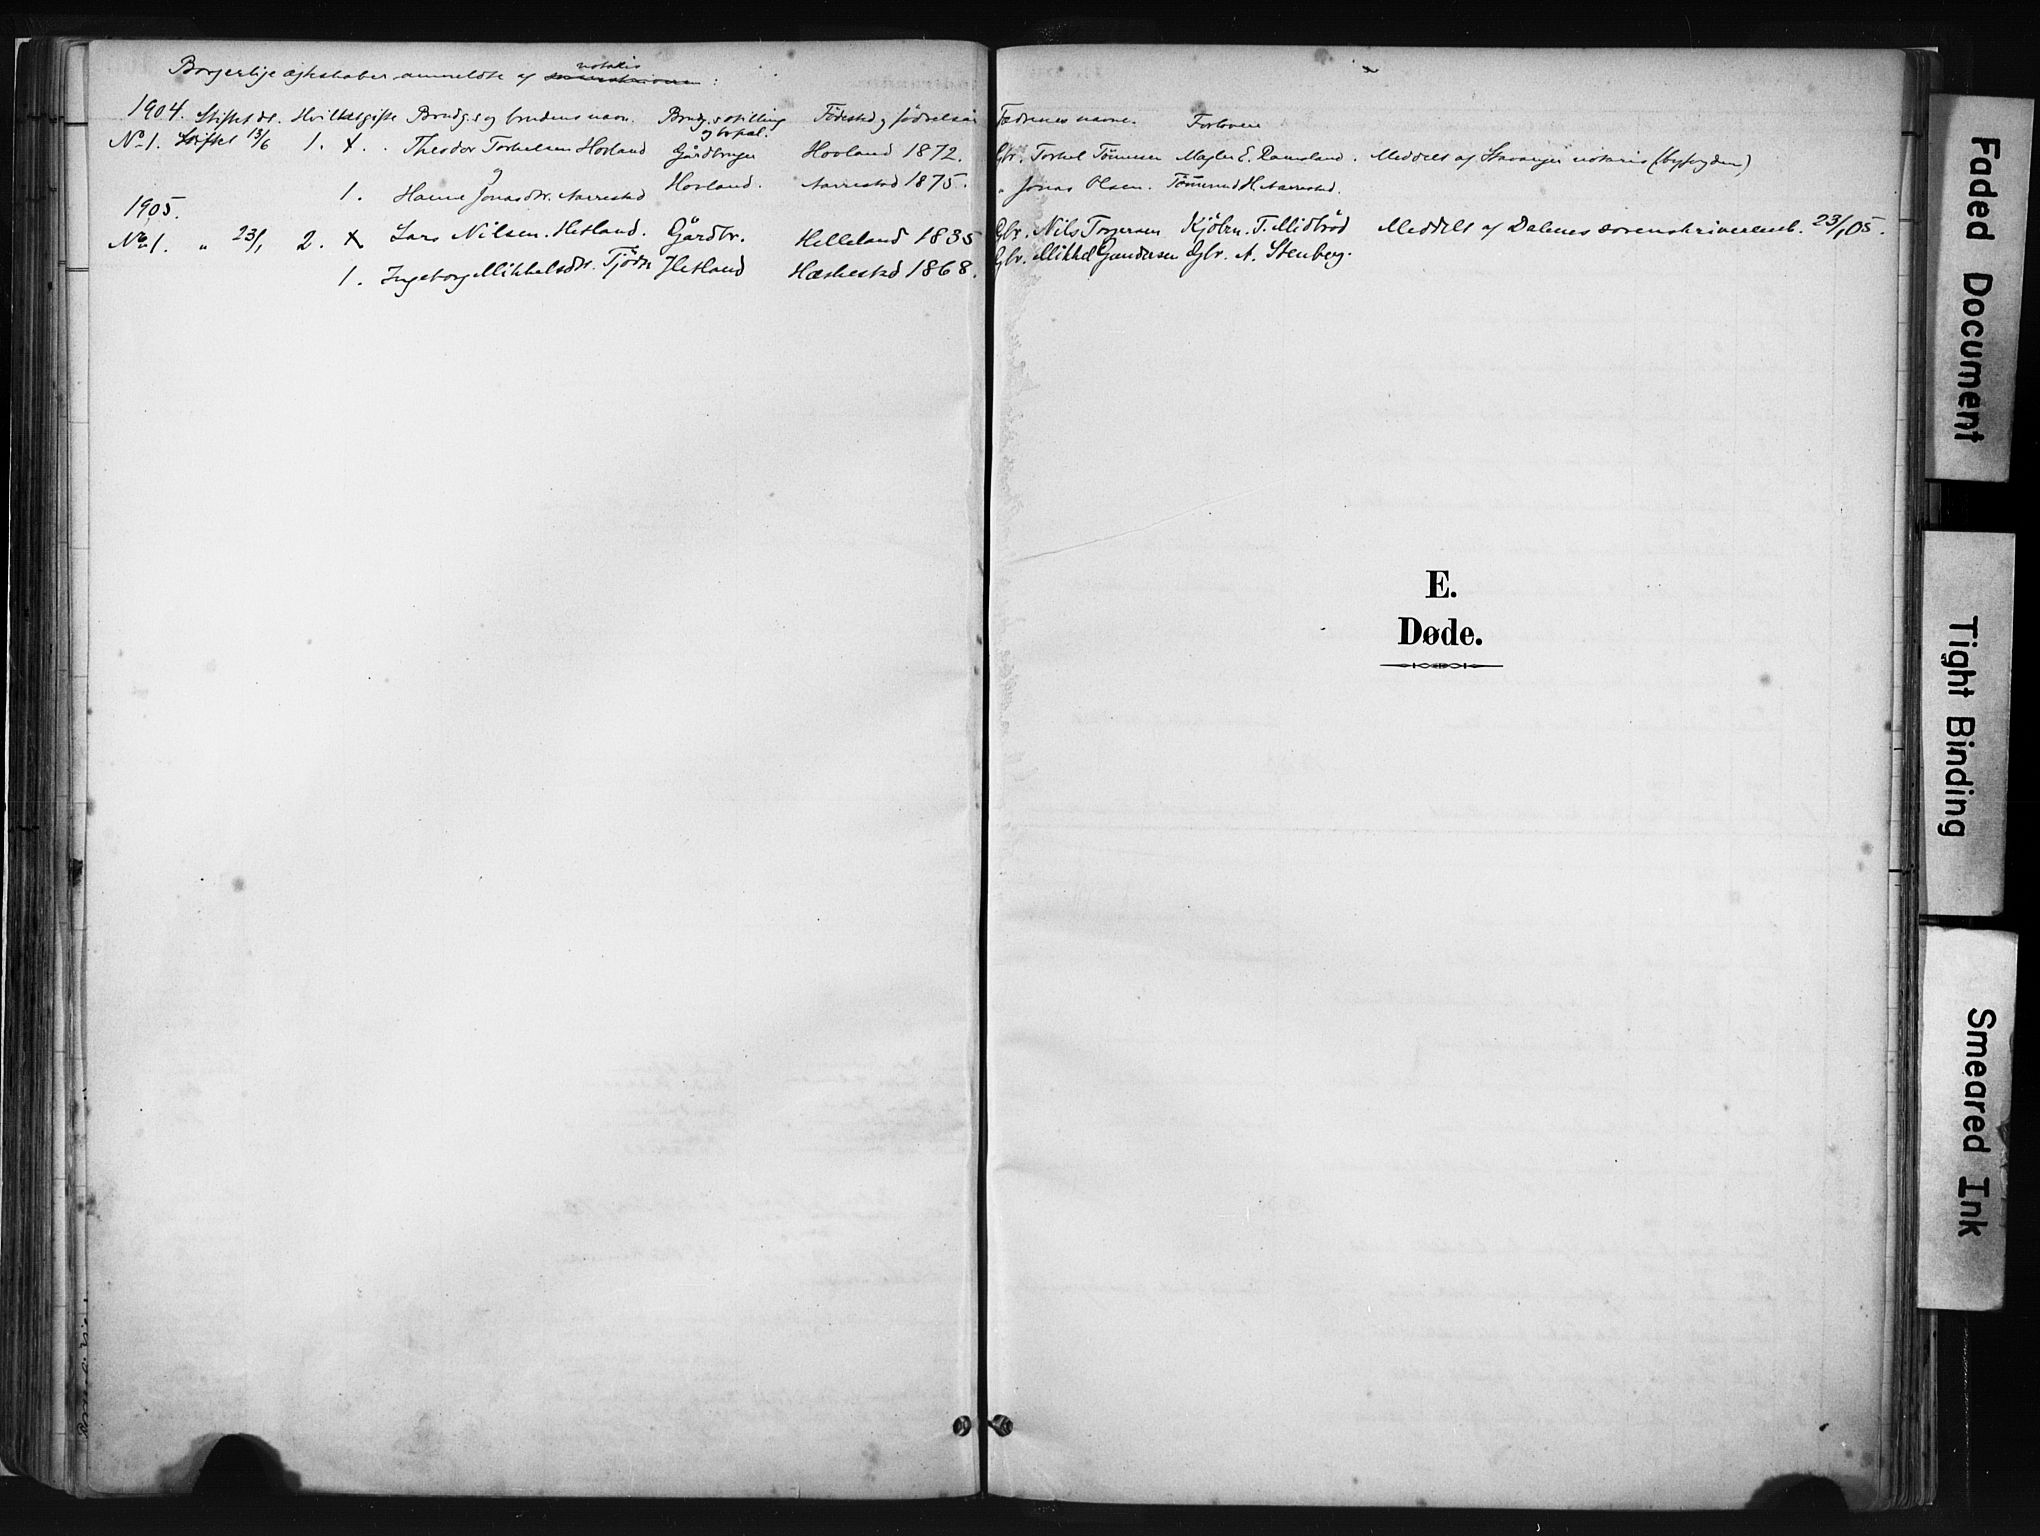 Borgerlige ægteskaber anmeldte af notaris sorenskriveren :
1904. Stiftet d. Hvilketgifte Brudg.s og brudens navn. Brudg.s stilling og bopæl. Fødested og fødselsår Fædrenes navne. Forlovere
No 1. Stiftet 13/6 1. + . Theodor Torkelsen Hovland Gårdbruger Hovland 1872. Gbr. Torkel Tønnesen Magler E. Ramsland . Meddelt af Stavanger notaris (byfogden)
1. Hanne Jonasdtr. Narrestad Hovland. Narrestad 1875. " Jonas Olsen. Tønnes H. Narrestad.
1905.
No 1. " 23/1 2. + Lars Nilsen. Hetland. Gårdbr. Helleland 1835 Gbr. Nils Torgersen Kjøbm. T. Midbrød Meddelt af Dalenes sorenskriveremb. 23/1 05.
1. Ingeborg Mikkelsdtr. Tjørn Hetland Heskestad 1868. Gbr. Mikkel Gundersen Gbr. A. Stenberg.
E.
Døde.
Faded Document
Tight Binding
Smeared Ink